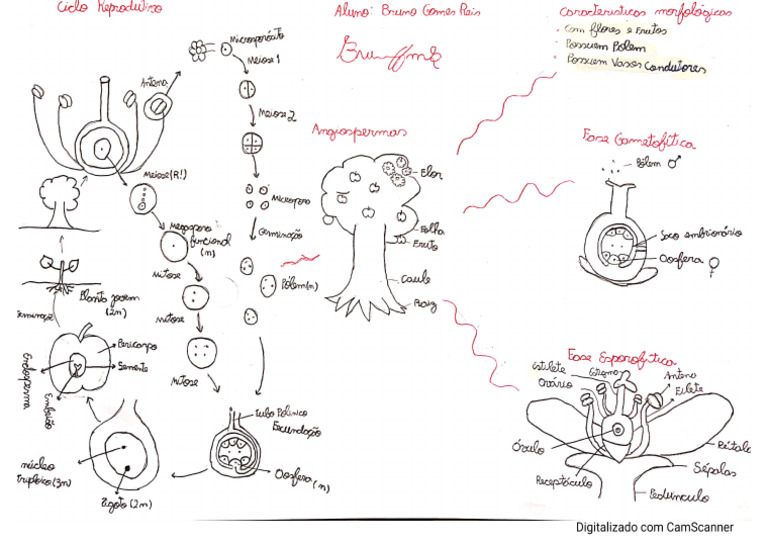 Ciclo Reprodutivo
Aluno: Bruno Gomes Reis
Características morfológicas
Com flores e Frutos
Possuem Pólem
Possuem Vasos Condutores
Microsporócito
Meiose 1
Antena
Meiose 2
Meiose (R!)
Microsporo
Megasporo
funcional
(n)
Germinação
Mitose
Pólem(n)
Mitose
Mitose
Planta jovem
(2n)
Germinação
Pericarpo
Semente
Endosperma
Embrião
tubo Polínico
Fecundação
Oosfera (n)
núcleo
triploico (3n)
Zigoto (2n)
Angiospermas
Flor
Folha
Fruto
Caule
Raiz
Fase Gametofítica
Pólem ♂
Saco embrionário
Oosfera ♀
Fase Esporofítica
Estilete
Estigma
Antena
Filete
Ovário
Óvulo
Pétala
Sépalas
Receptáculo
Pedúnculo
Digitalizado com CamScanner